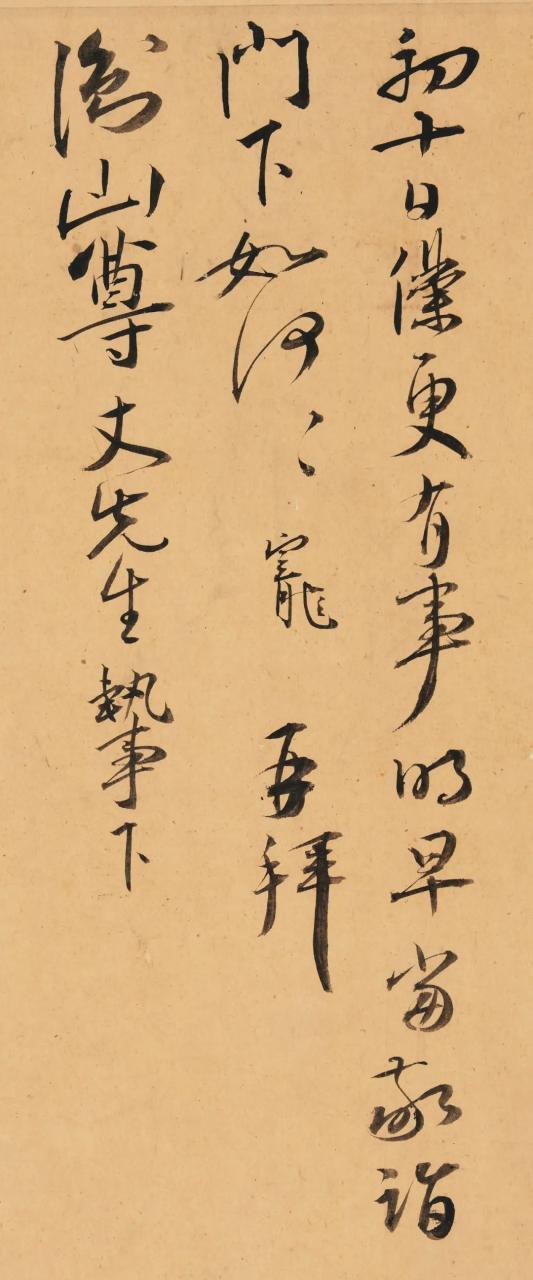 初十日儻更有事明早當敬詣
門下如何〻寵再拜
衡山尊丈先生執事下